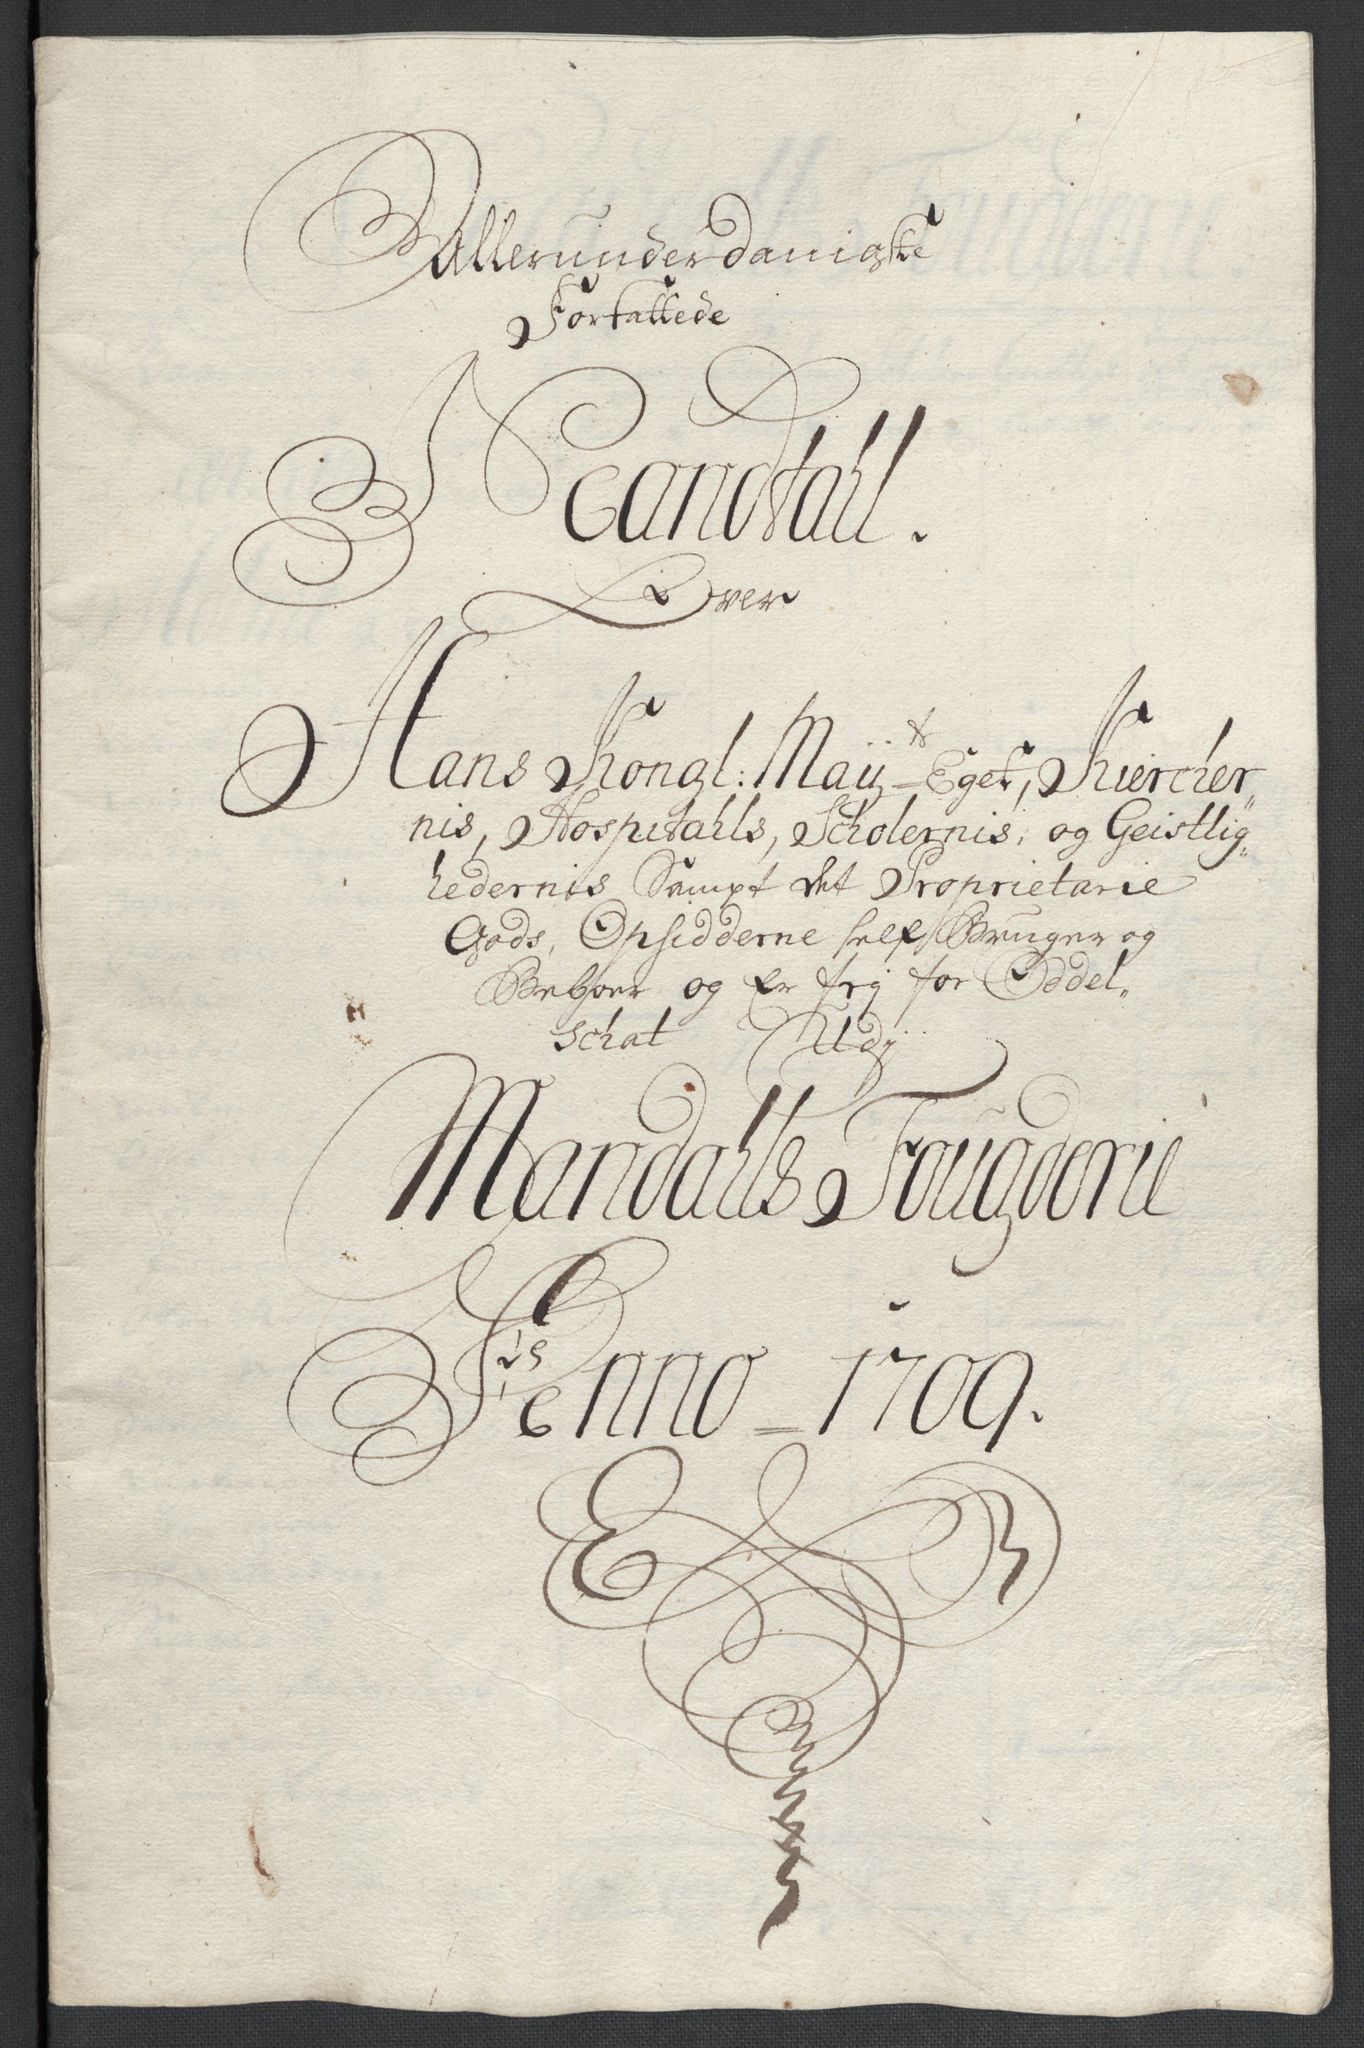 Allerunderdanigste
Forfattede
Mandtahl.
Over
Hans Kongl: Mayts Eget, Kiercher„
nis, Hospitahls, Scholernis, og Geistlig„
hedernis Sampt det Proprietarie
Gods, Opsidderne self Bruger og
Beboer og Er frj for Oddel„
schat Udj
Mandahls Fougderie
Anno 1709.